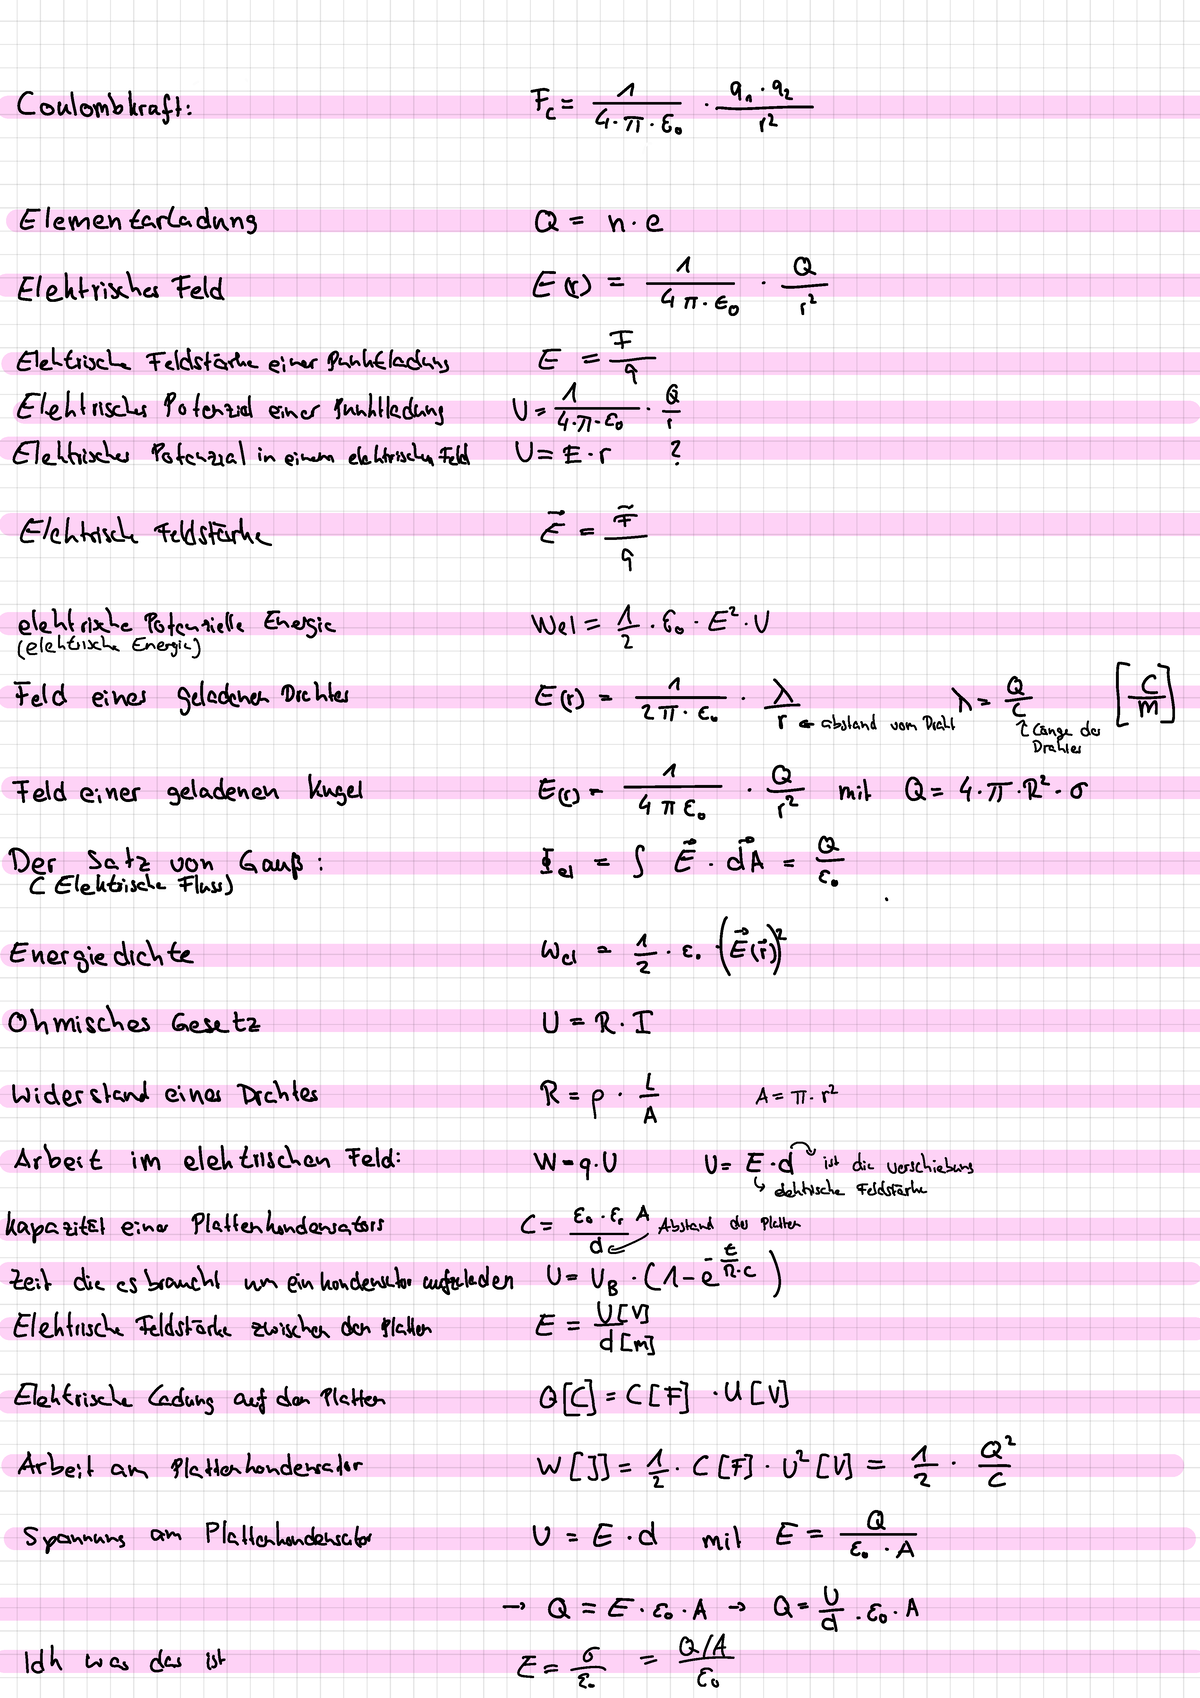 Coulombkraft: F_c = 1/(4·π·ε₀) · (q₁·q₂)/r²
Elementarladung Q = n·e
Elektrisches Feld E(r) = 1/(4π·ε₀) · Q/r²
Elektrische Feldstärke einer Punktladung E = F/q
Elektrisches Potenzial einer Punktladung U = 1/(4·π·ε₀) · Q/r
Elektrisches Potenzial in einem elektrischen Feld U = E·r ?
Elektrische Feldstärke E⃗ = F⃗/q
elektrische Potenzielle Energie Wel = 1/2 · ε₀ · E² · U
(elektrische Energie)
Feld eines geladenen Drahtes E(r) = 1/(2π·ε₀) · λ/r ← abstand vom Draht λ = Q/L [C/m]
↑ Länge des Drahtes
Feld einer geladenen Kugel E(r) = 1/(4πε₀) · Q/r² mit Q = 4·π·R²·σ
Der Satz von Gauß: Φ_el = ∫ E⃗ · dA⃗ = Q/ε₀
(Elektrische Fluss)
Energiedichte W_el = 1/2 · ε₀ · (E⃗(r⃗))²
Ohmisches Gesetz U = R·I
Widerstand eines Drahtes R = ρ · L/A A = π·r²
Arbeit im elektrischen Feld: W = q·U U = E·d ist die verschiebung
↳ elektrische Feldstärke
Kapazität einer Plattenkondensators C = (ε₀·εᵣ A)/d Abstand der Platten
Zeit die es braucht um ein kondensator aufzuladen U = U_B · (1-e^(-t/(R·C)))
Elektrische Feldstärke zwischen den Platten E = U[V]/d[m]
Elektrische Ladung auf den Platten Q[C] = C[F] · U[V]
Arbeit am Plattenkondensator W[J] = 1/2 · C[F] · U²[V] = 1/2 · Q²/C
Spannung am Plattenkondensator U = E·d mit E = Q/(ε₀·A)
→ Q = E·ε₀·A → Q = U/d · ε₀·A
Idk was das ist E = σ/ε₀ = (Q/A)/ε₀